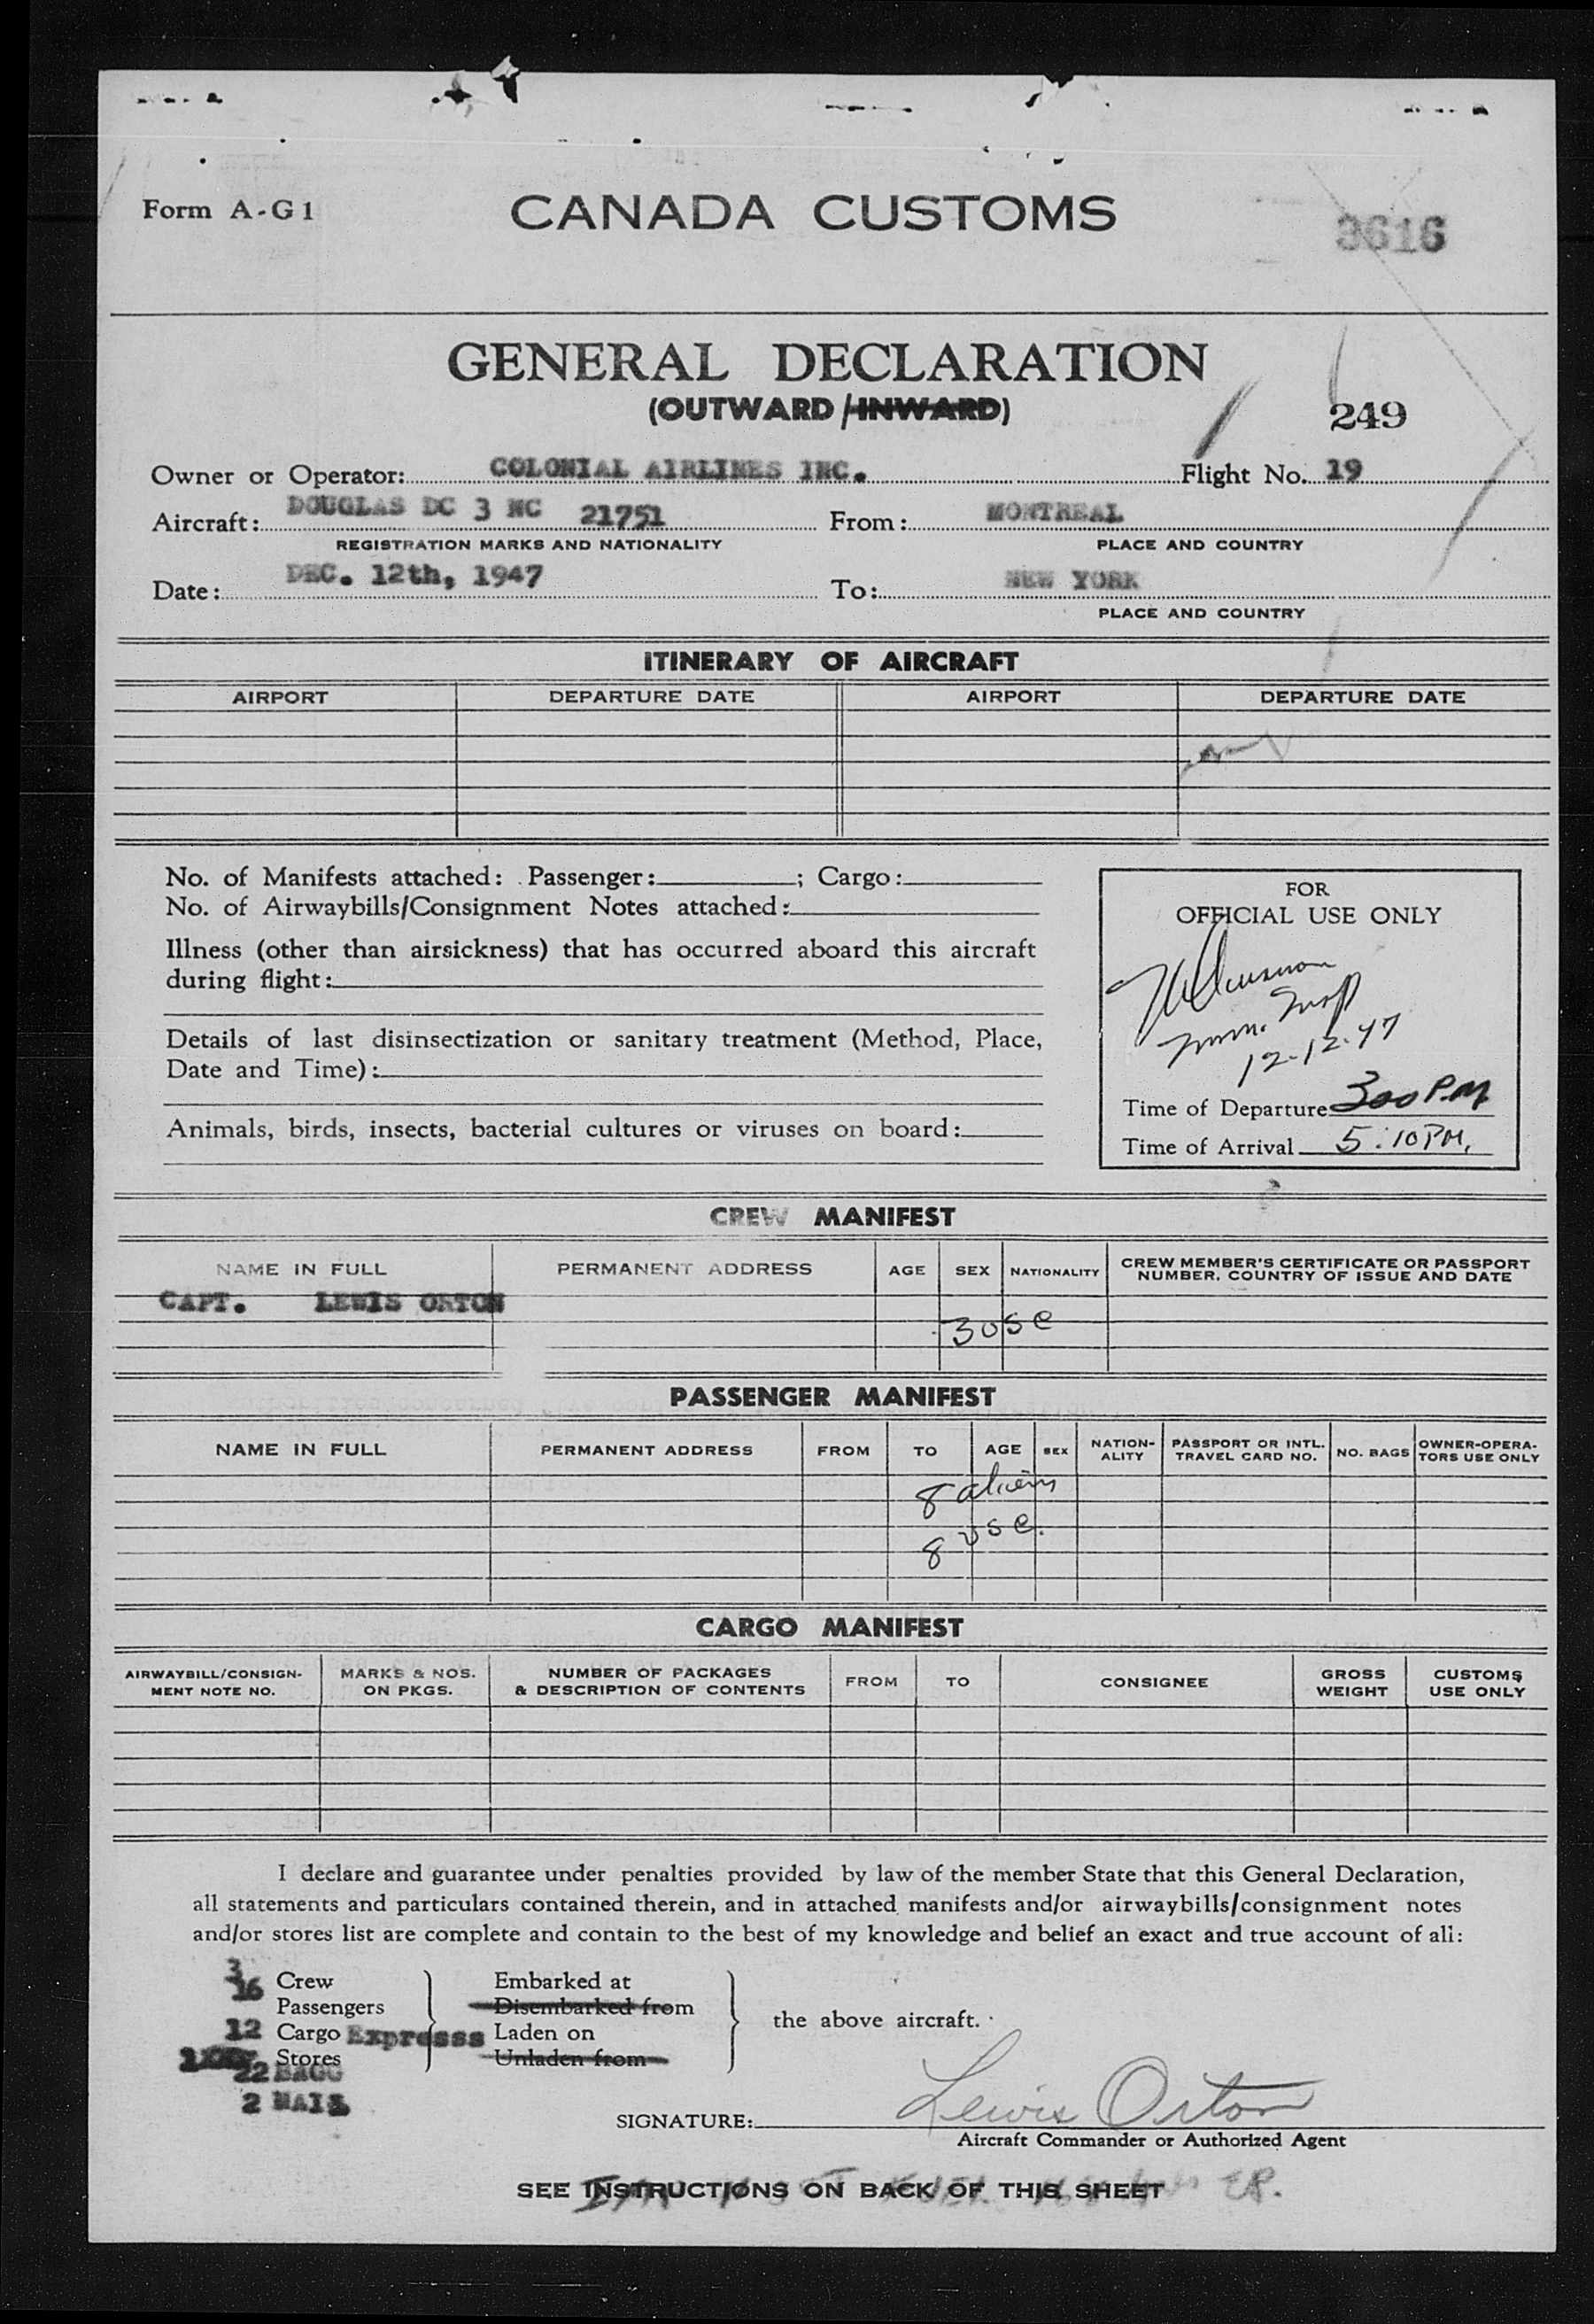 Form A-G1
CANADA CUSTOMS
3616
GENERAL DECLARATION
(OUTWARD/INWARD)
249
Owner or Operator: COLONIAL AIRLINES INC. Flight No. 19
Aircraft: DOUGLAS DC 3 NC 21751 From: MONTREAL
REGISTRATION MARKS AND NATIONALITY PLACE AND COUNTRY
Date: DEC. 12th, 1947 To: NEW YORK
PLACE AND COUNTRY
ITINERARY OF AIRCRAFT
AIRPORT DEPARTURE DATE AIRPORT DEPARTURE DATE
No. of Manifests attached: Passenger: ; Cargo:
No. of Airwaybills/Consignment Notes attached:
Illness (other than airsickness) that has occurred aboard this aircraft
during flight:
Details of last disinsectization or sanitary treatment (Method, Place,
Date and Time):
Animals, birds, insects, bacterial cultures or viruses on board:
FOR
OFFICIAL USE ONLY
Imm. Insp
12-12-47
Time of Departure 300 P.M
Time of Arrival 5:10 PM.
CREW MANIFEST
NAME IN FULL PERMANENT ADDRESS AGE SEX NATIONALITY CREW MEMBER'S CERTIFICATE OR PASSPORT
NUMBER, COUNTRY OF ISSUE AND DATE
CAPT. LEWIS ORTON
3 usc
PASSENGER MANIFEST
NAME IN FULL PERMANENT ADDRESS FROM TO AGE SEX NATION-
ALITY PASSPORT OR INTL.
TRAVEL CARD NO. NO. BAGS OWNER-OPERA-
TORS USE ONLY
8 aliens
8 usc.
CARGO MANIFEST
AIRWAYBILL/CONSIGN-
MENT NOTE NO. MARKS & NOS.
ON PKGS. NUMBER OF PACKAGES
& DESCRIPTION OF CONTENTS FROM TO CONSIGNEE GROSS
WEIGHT CUSTOMS
USE ONLY
I declare and guarantee under penalties provided by law of the member State that this General Declaration,
all statements and particulars contained therein, and in attached manifests and/or airwaybills/consignment notes
and/or stores list are complete and contain to the best of my knowledge and belief an exact and true account of all:
3 Crew Embarked at
16 Passengers Disembarked from
the above aircraft.
12 Cargo Expresss Laden on
Stores Unladen from
22 BAGG
2 MAIL
SIGNATURE: Lewis Orton
Aircraft Commander or Authorized Agent
SEE INSTRUCTIONS ON BACK OF THIS SHEET